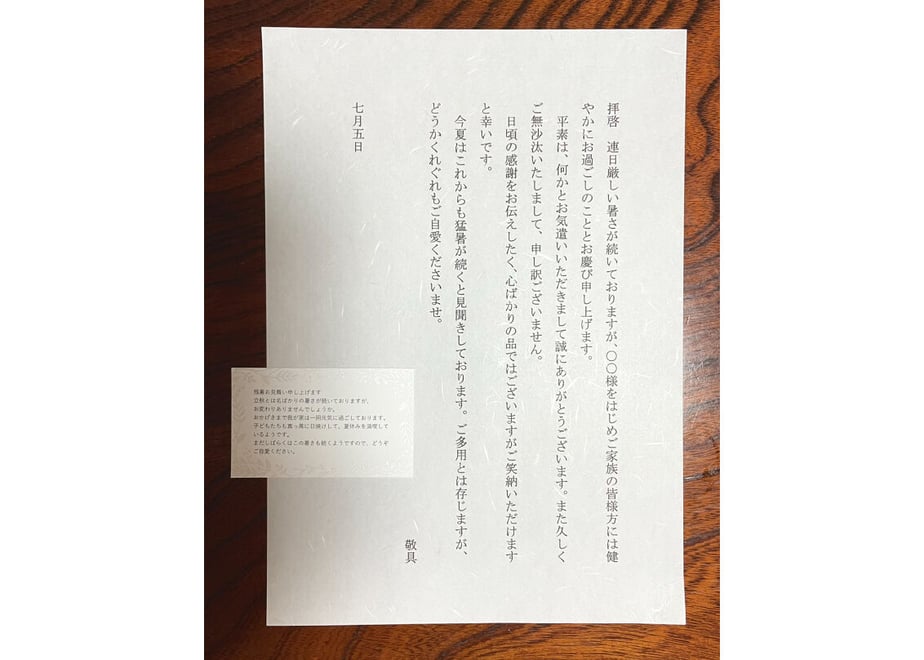 拝啓　連日厳しい暑さが続いておりますが、〇〇様をはじめご家族の皆様方には健
やかにお過ごしのこととお慶び申し上げます。
平素は、何かとお気遣いいただきまして誠にありがとうございます。また久しく
ご無沙汰いたしまして、申し訳ございません。
日頃の感謝をお伝えしたく、心ばかりの品ではございますがご笑納いただけます
と幸いです。
今夏はこれからも猛暑が続くと見聞きしております。ご多用とは存じますが、
どうかくれぐれもご自愛くださいませ。
敬具
七月五日
残暑お見舞い申し上げます
立秋とは名ばかりの暑さが続いておりますが、
お変わりありませんでしょうか。
おかげさまで我が家は一同元気に過ごしております。
子どもたちも真っ黒に日焼けして、夏休みを満喫して
いるようです。
まだしばらくはこの暑さも続くようですので、どうぞ
ご自愛ください。